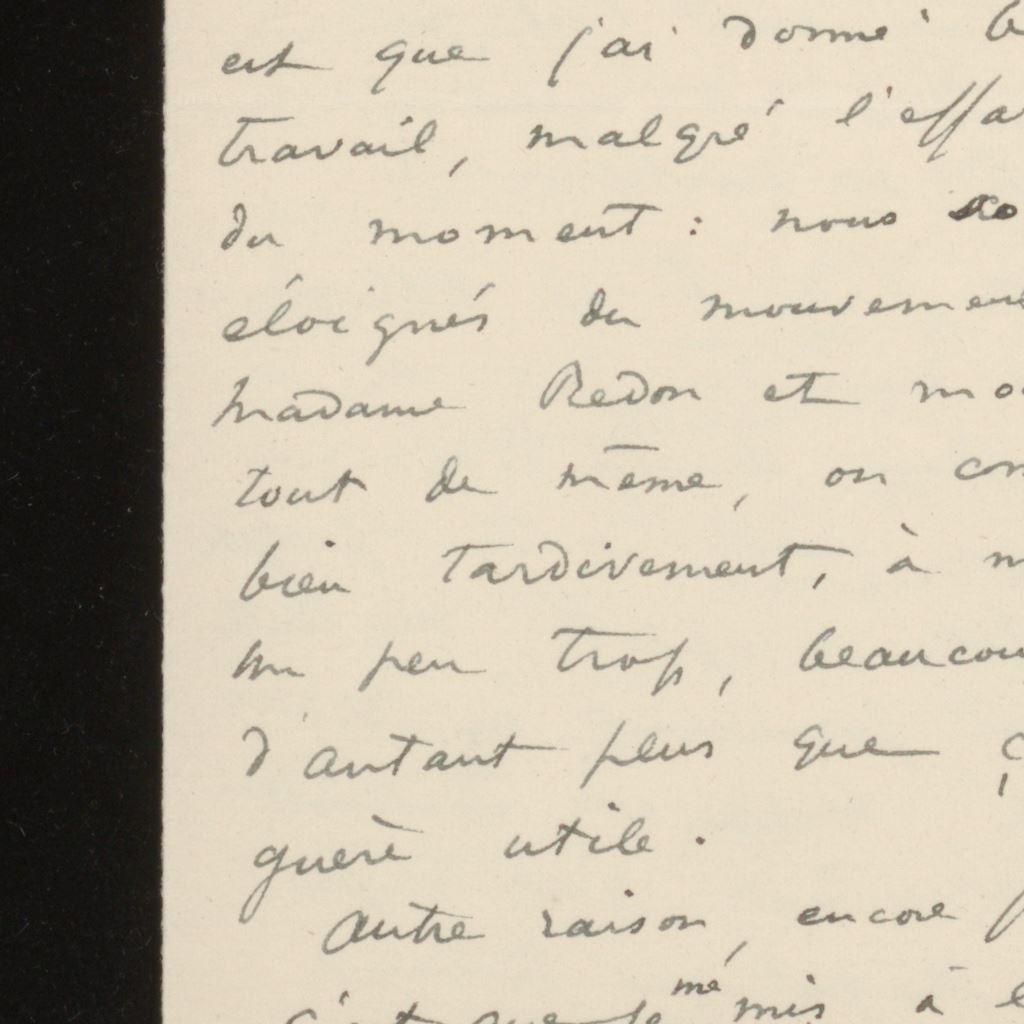 est que j'ai donné b
travail, malgré l'effa
du moment : nous so
éloignés du mouvemen
Madame Redon et mo
tout de même, on con
bien tardivement, à m
un peu trop, beaucou
d'autant plus que ç
guère utile.
Autre raison, encore p
c'est que je me mis à l